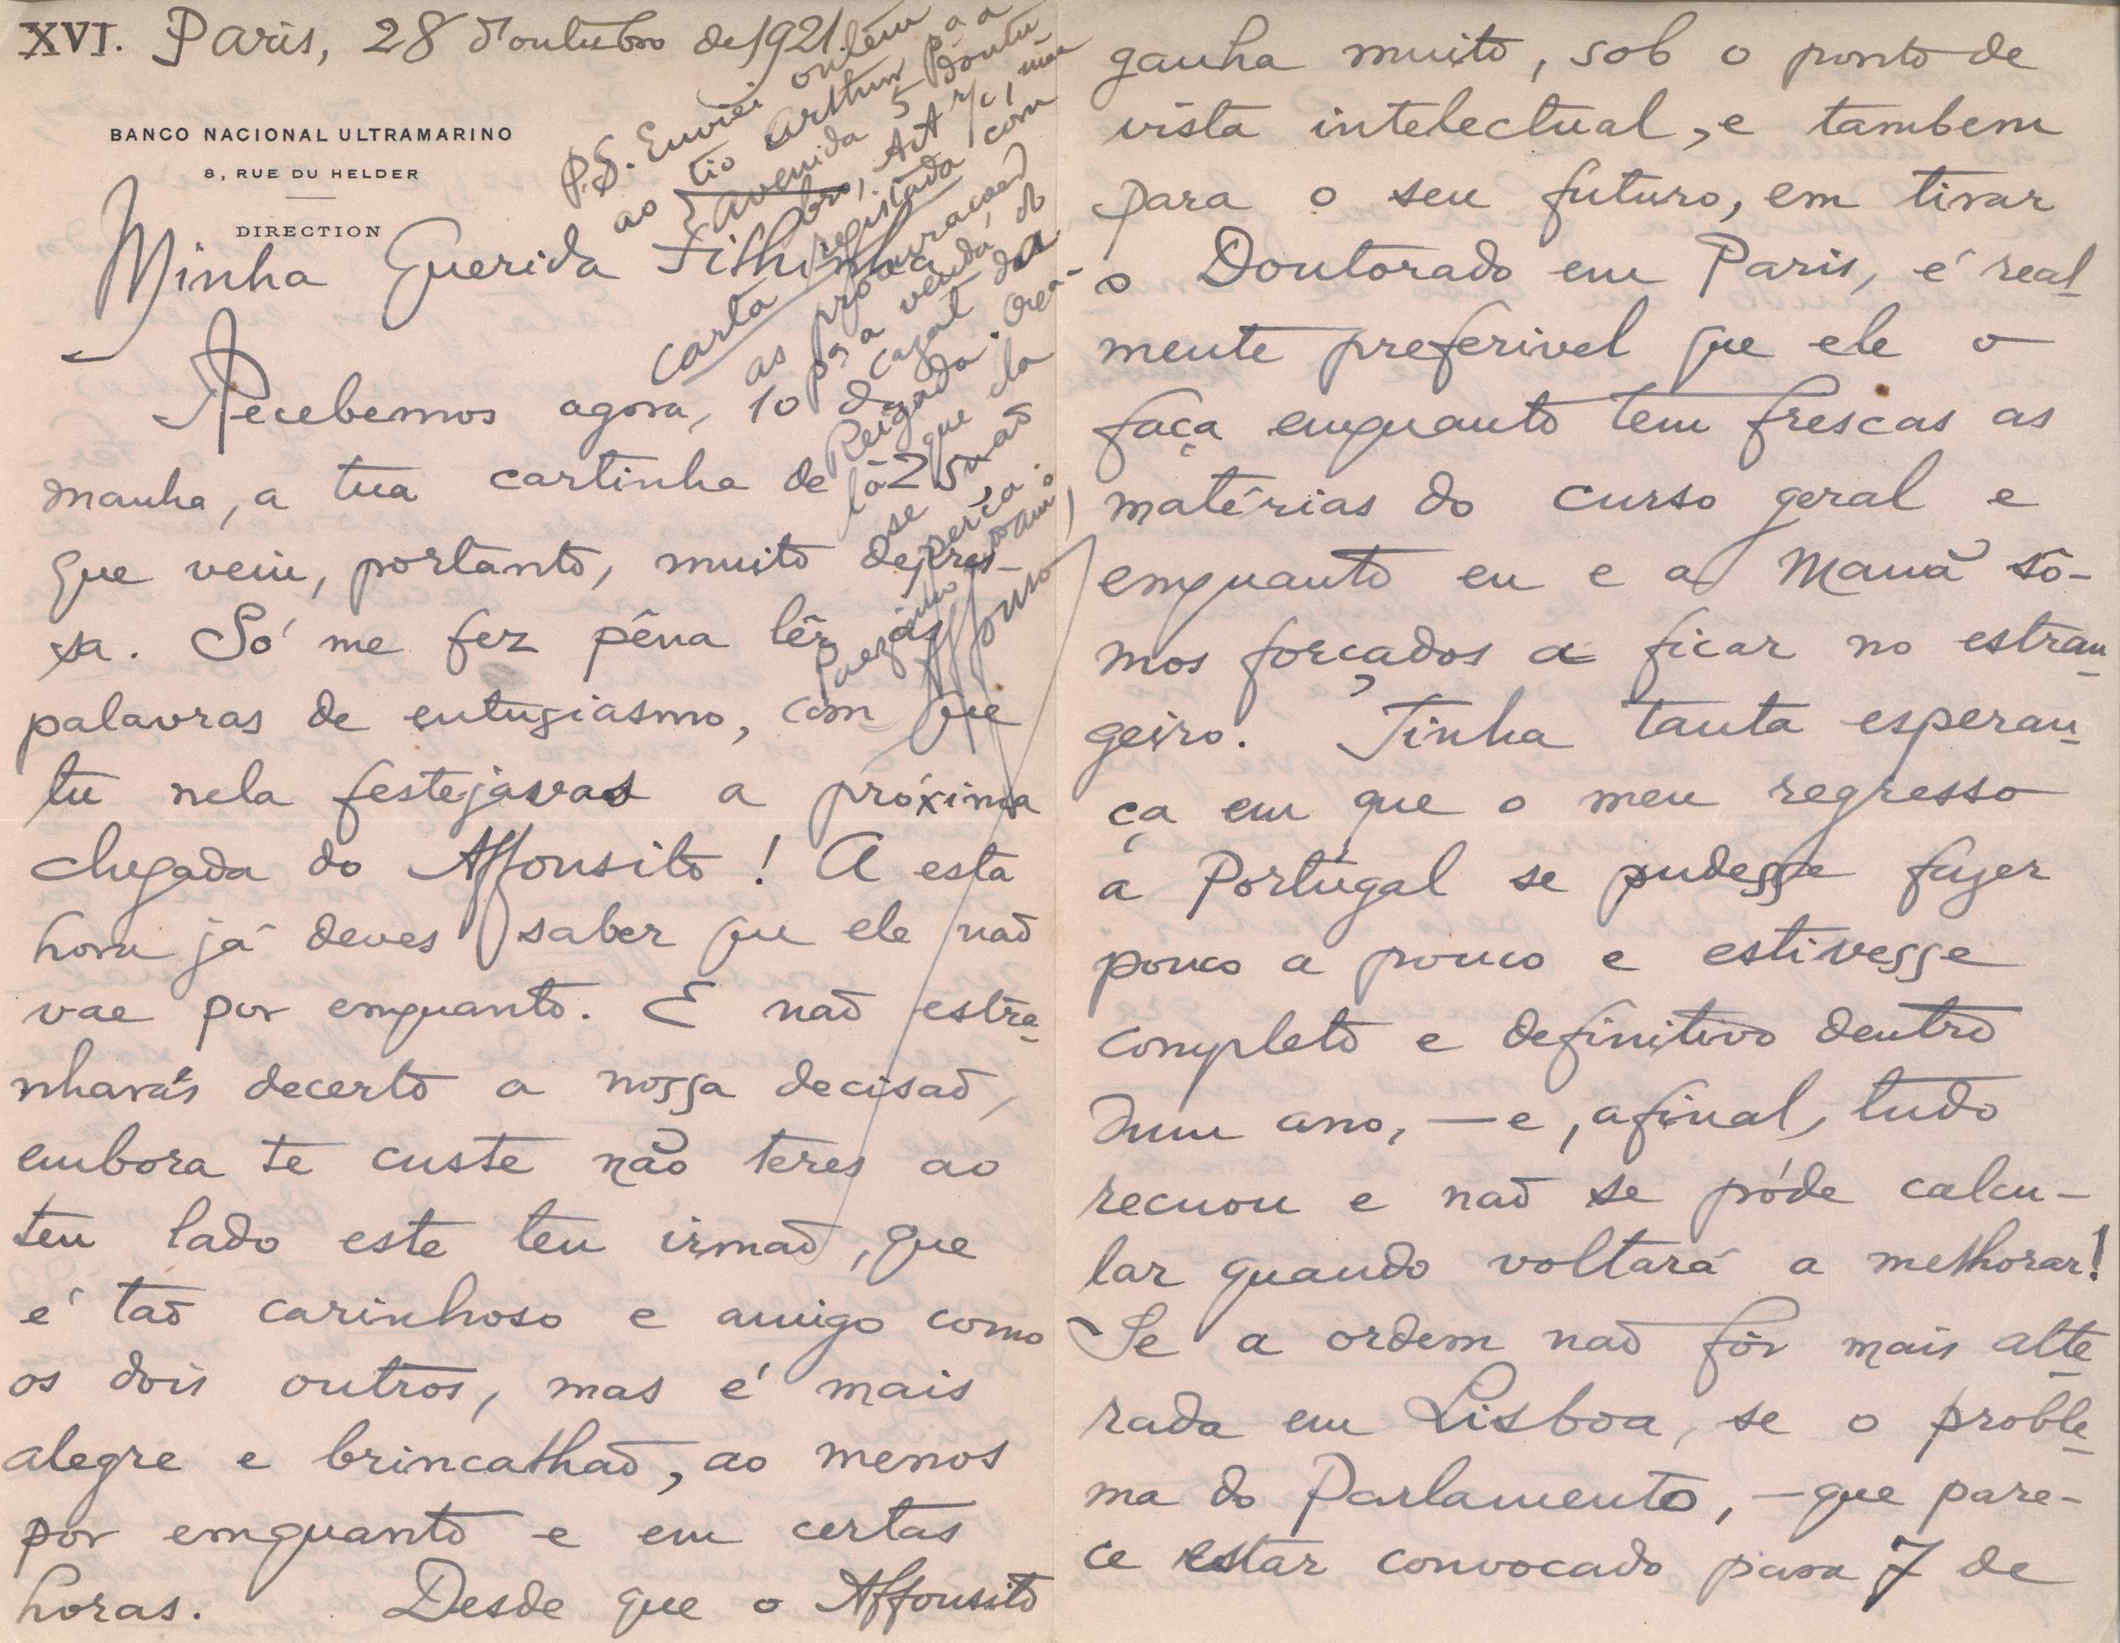 XVI. Paris, 28 d'outubro de 1921.
BANCO NACIONAL ULTRAMARINO
8, RUE DU HELDER
DIRECTION
Minha Querida Filhinha
Recebemos agora, 10 da
manhã, a tua cartinha de 25
que veiu, portanto, muito depres-
sa. Só me fez pêna lêr as
palavras de entusiasmo, com que
tu nela festejavas a próxima
chegada do Affonsito! A esta
hora já deves saber que ele não
vae por emquanto. E não estra-
nharás decerto a nossa decisão,
embora te custe não teres ao
teu lado este teu irmão, que
é tão carinhoso e amigo como
os dois outros, mas é mais
alegre e brincalhão, ao menos
por emquanto e em certas
horas. Desde que o Affonsito
ganha muito, sob o ponto de
vista intelectual, e tambem
para o seu futuro, em tirar
o Doutorado em Paris, é real-
mente preferivel que ele o
faça emquanto tem frescas as
matérias do curso geral e
emquanto eu e a Mamã sô-
mos forçados a ficar no estran-
geiro. Tinha tanta esperan-
ça em que o meu regresso
a Portugal se pudesse fazer
pouco a pouco e estivesse
completo e definitivo dentro
dum ano, — e, afinal, tudo
recuou e não se póde calcu-
lar quando voltará a melhorar!
Se a ordem não fôr mais alte-
rada em Lisboa, se o proble-
ma do Parlamento, — que pare-
ce estar convocado para 7 de
P.S. Enviei ontem
ao tio Arthur pa a
Avenida 5 d'outu-
bro, r/c, uma
carta registada com
as procurações
pa a venda do
cazal da
Reigada. Oxa-
lá que ela
se não
perca.
Paezinho
Affonso